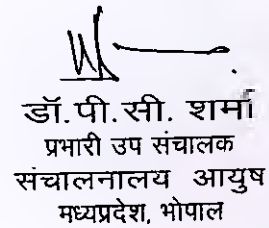 डॉ.पी.सी. शर्मा
प्रभारी उप संचालक
संचालनालय आयुष
मध्यप्रदेश, भोपाल